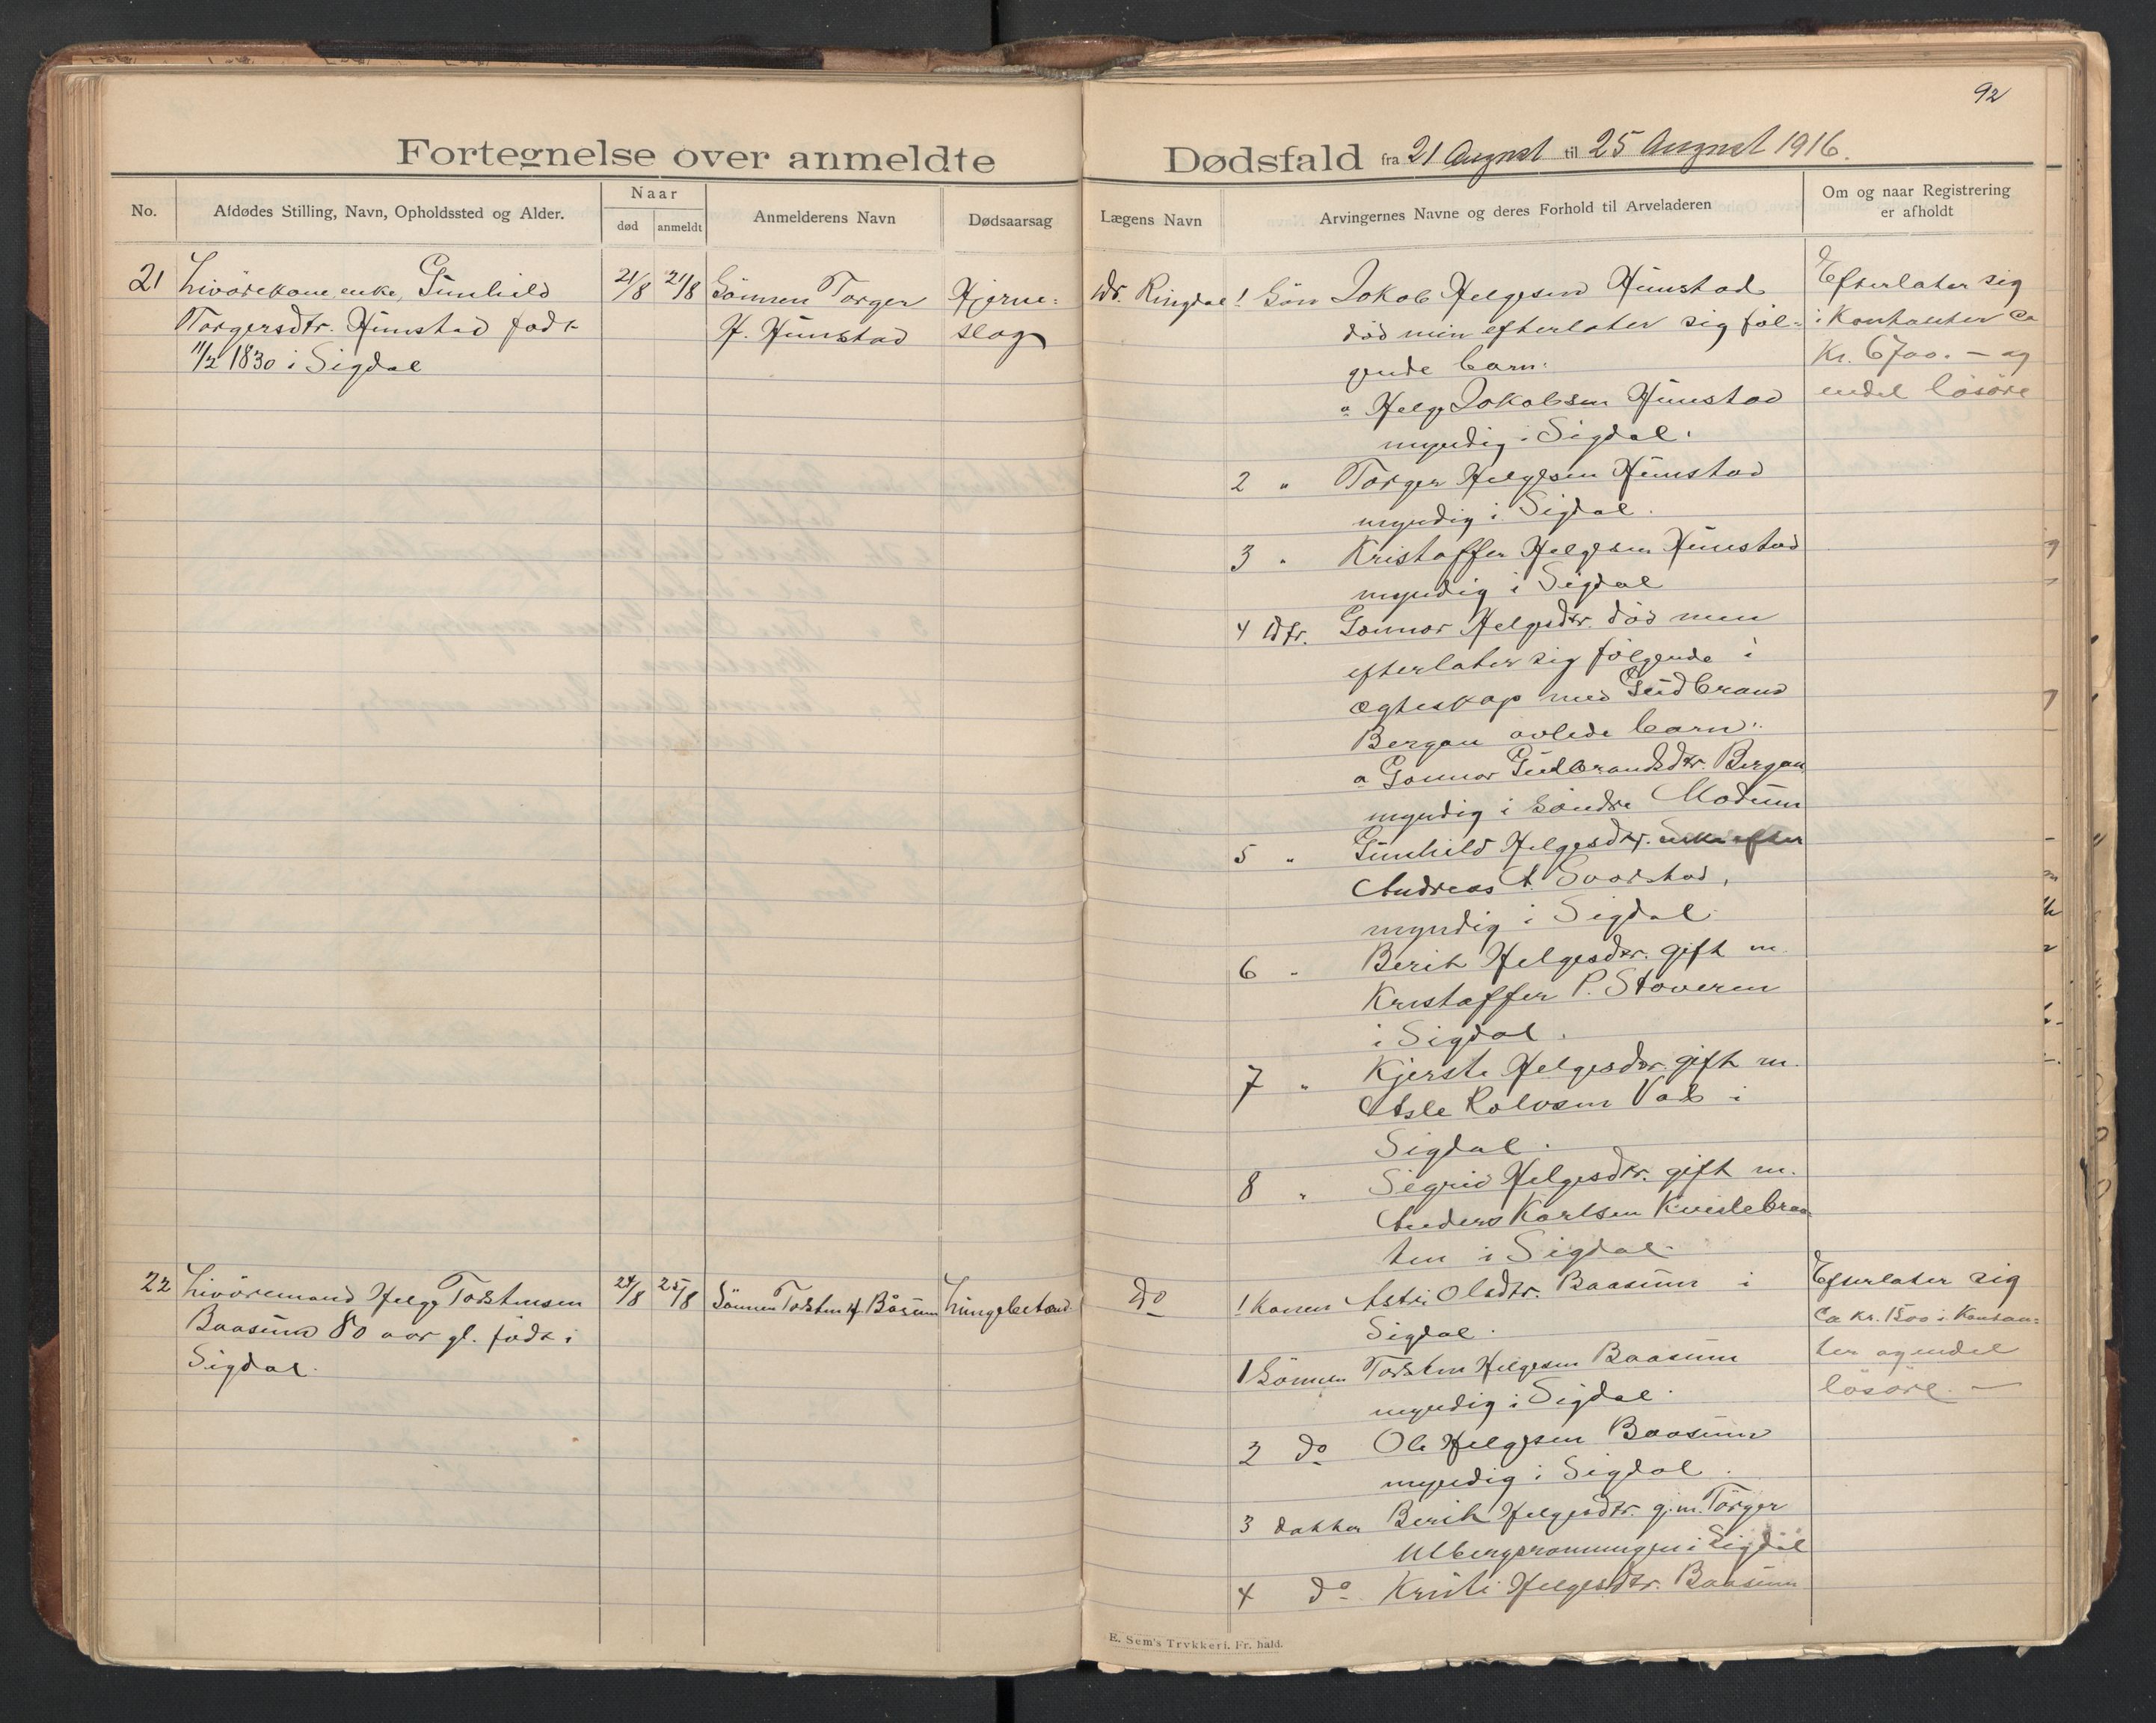 92
Fortegnelse over anmeldte Dødsfald fra 21 August til 25 August 1916.
No.
Afdødes Stilling, Navn, Opholdssted og Alder.
Naar
død
anmeldt
Anmelderens Navn
Dødsaarsag
Lægens Navn
Arvingernes Navne og deres Forhold til Arveladeren
Om og naar Registrering
er afholdt
21 Livörekone, enke, Gunhild
Torgersdtr. Hunstad født
11/2 1830 i Sigdal
21/8 21/8
Sönnen Torger
H. Hunstad
Hjerne-
slag
Dr. Ringdal
1 Sön Jakob Helgesen Hunstad
död men efterlater sig föl-
gende barn:
a Helge Jakobsen Hunstad
myndig i Sigdal.
2 " Torger Helgesen Hunstad
myndig i Sigdal.
3 " Kristoffer Helgesen Hunstad
myndig i Sigdal
4 Dtr. Gonnor Helgesdtr. död men
efterlater sig følgende i
egteskap med Gudbrand
Bergan avlede barn:
a Gonnor Gudbrandsdtr. Bergan
myndig i Söndre Modum
5 " Gunhild Helgesdtr. enke efter
Andreas A. Svarstad,
myndig i Sigdal
6 " Berit Helgesdtr. gift m.
Kristoffer P. Stoveren
i Sigdal.
7 " Kjersti Helgesdtr. gift m.
Asle Rolvsen Vad i
Sigdal.
8 " Sigrid Helgesdtr. gift m.
Anders Karlsen Kvislebraa
ten i Sigdal.
Efterlater sig
i Kontanter ca
Kr. 6700.- og
endel lösöre
22 Livöremand Helge Torstensen
Baasum 80 aar gl. född i
Sigdal.
24/8 25/8
Sönnen Torsten H. Båsum
Lungebetænd.
do
1 Konen Astri Olsdtr. Baasum i
Sigdal.
1 Sönnen Torsten Helgesen Baasum
myndig i Sigdal.
2 do Ole Helgesen Baasum
myndig i Sigdal.
3 datter Berit Helgesdtr. g. m. Torger
Ulbergsrønningen i Sigdal
4 do Kristi Helgesdtr. Baasum
Efterlater sig
ca Kr. 1500 i Kontan-
ter og endel
lösöre. —
E. Sem's Trykkeri. Fr. hald.